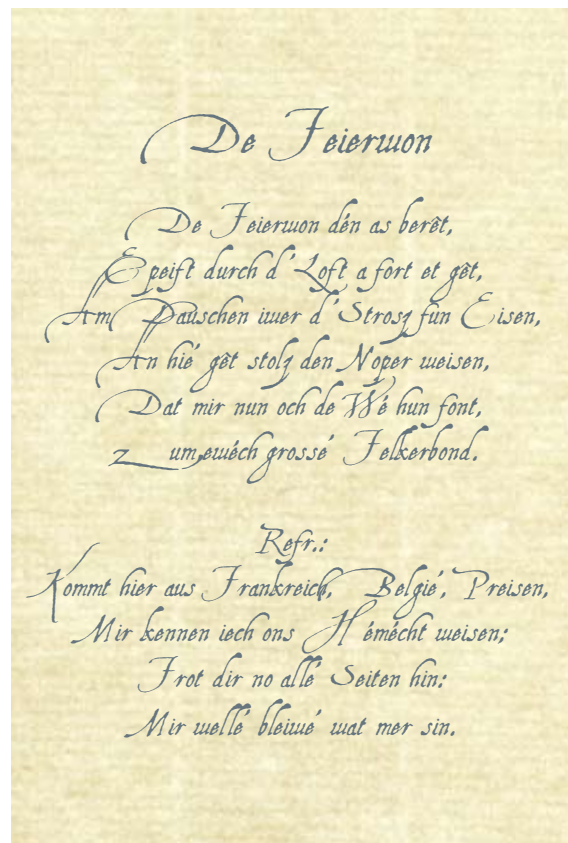 De Feierwon
De Feierwon dén as berêt,
E peift durch d'Loft a fort et gêt,
Am Dauschen iwer d'Strosz fun Eisen,
An hié gêt stolz den Noper weisen,
Dat mir nun och de Wé hun font,
Zum ewéch grossé Felkerbond.
Refr.:
Kommt hier aus Frankreich, Belgié, Preisen,
Mir kennen iech ons Hémécht weisen;
Frot dir no allé Seiten hin:
Mir wellé bleiwé wat mer sin.